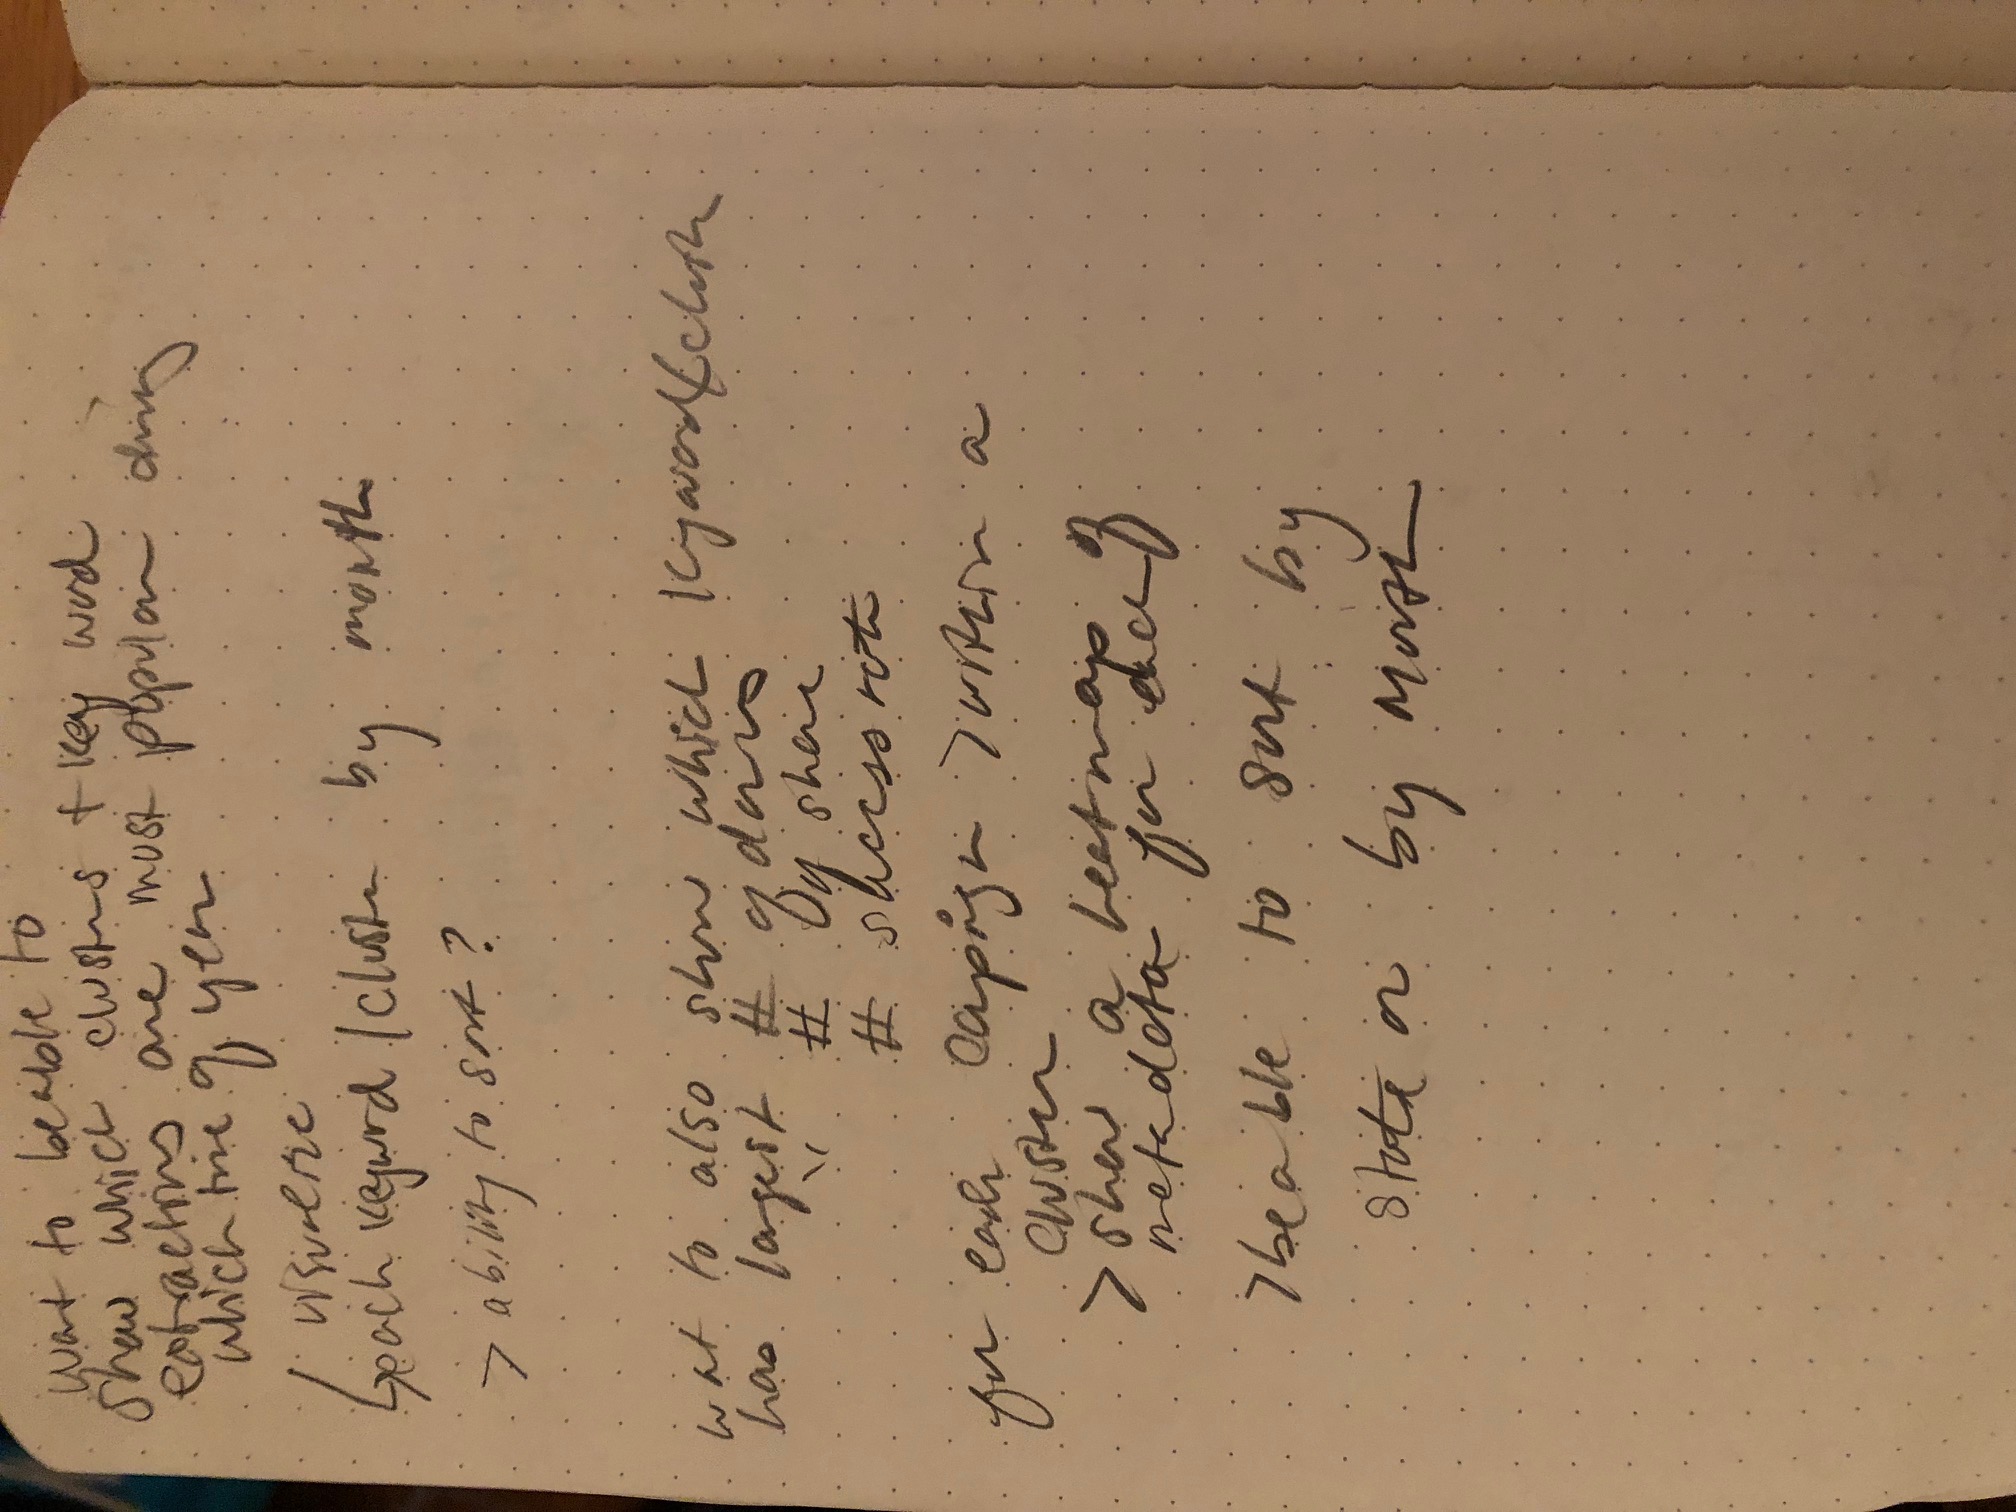 want to be able to
show which clusters + key word
extractions are most popular during
which time of year
visualize
↳ each keyword / cluster by month
> ability to sort ?
want to also show which keyword/cluster
has largest # of donors
" # of share
# success rate
for each campaign > within a
cluster
> show a heatmap of
metadata for each
> be able to sort by
state or by month